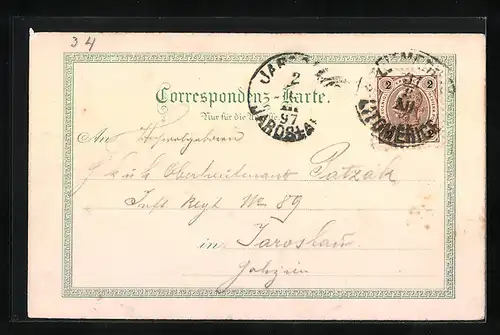 34
Correspondenz-Karte.
Nur für die
An Hochwolgeboren
J k u k Oberlieutenant Patzák
Inft Regt No 89
in Jaroslau
Galizien
2
2
2
97
JAROSLAU
LEITMERITZ